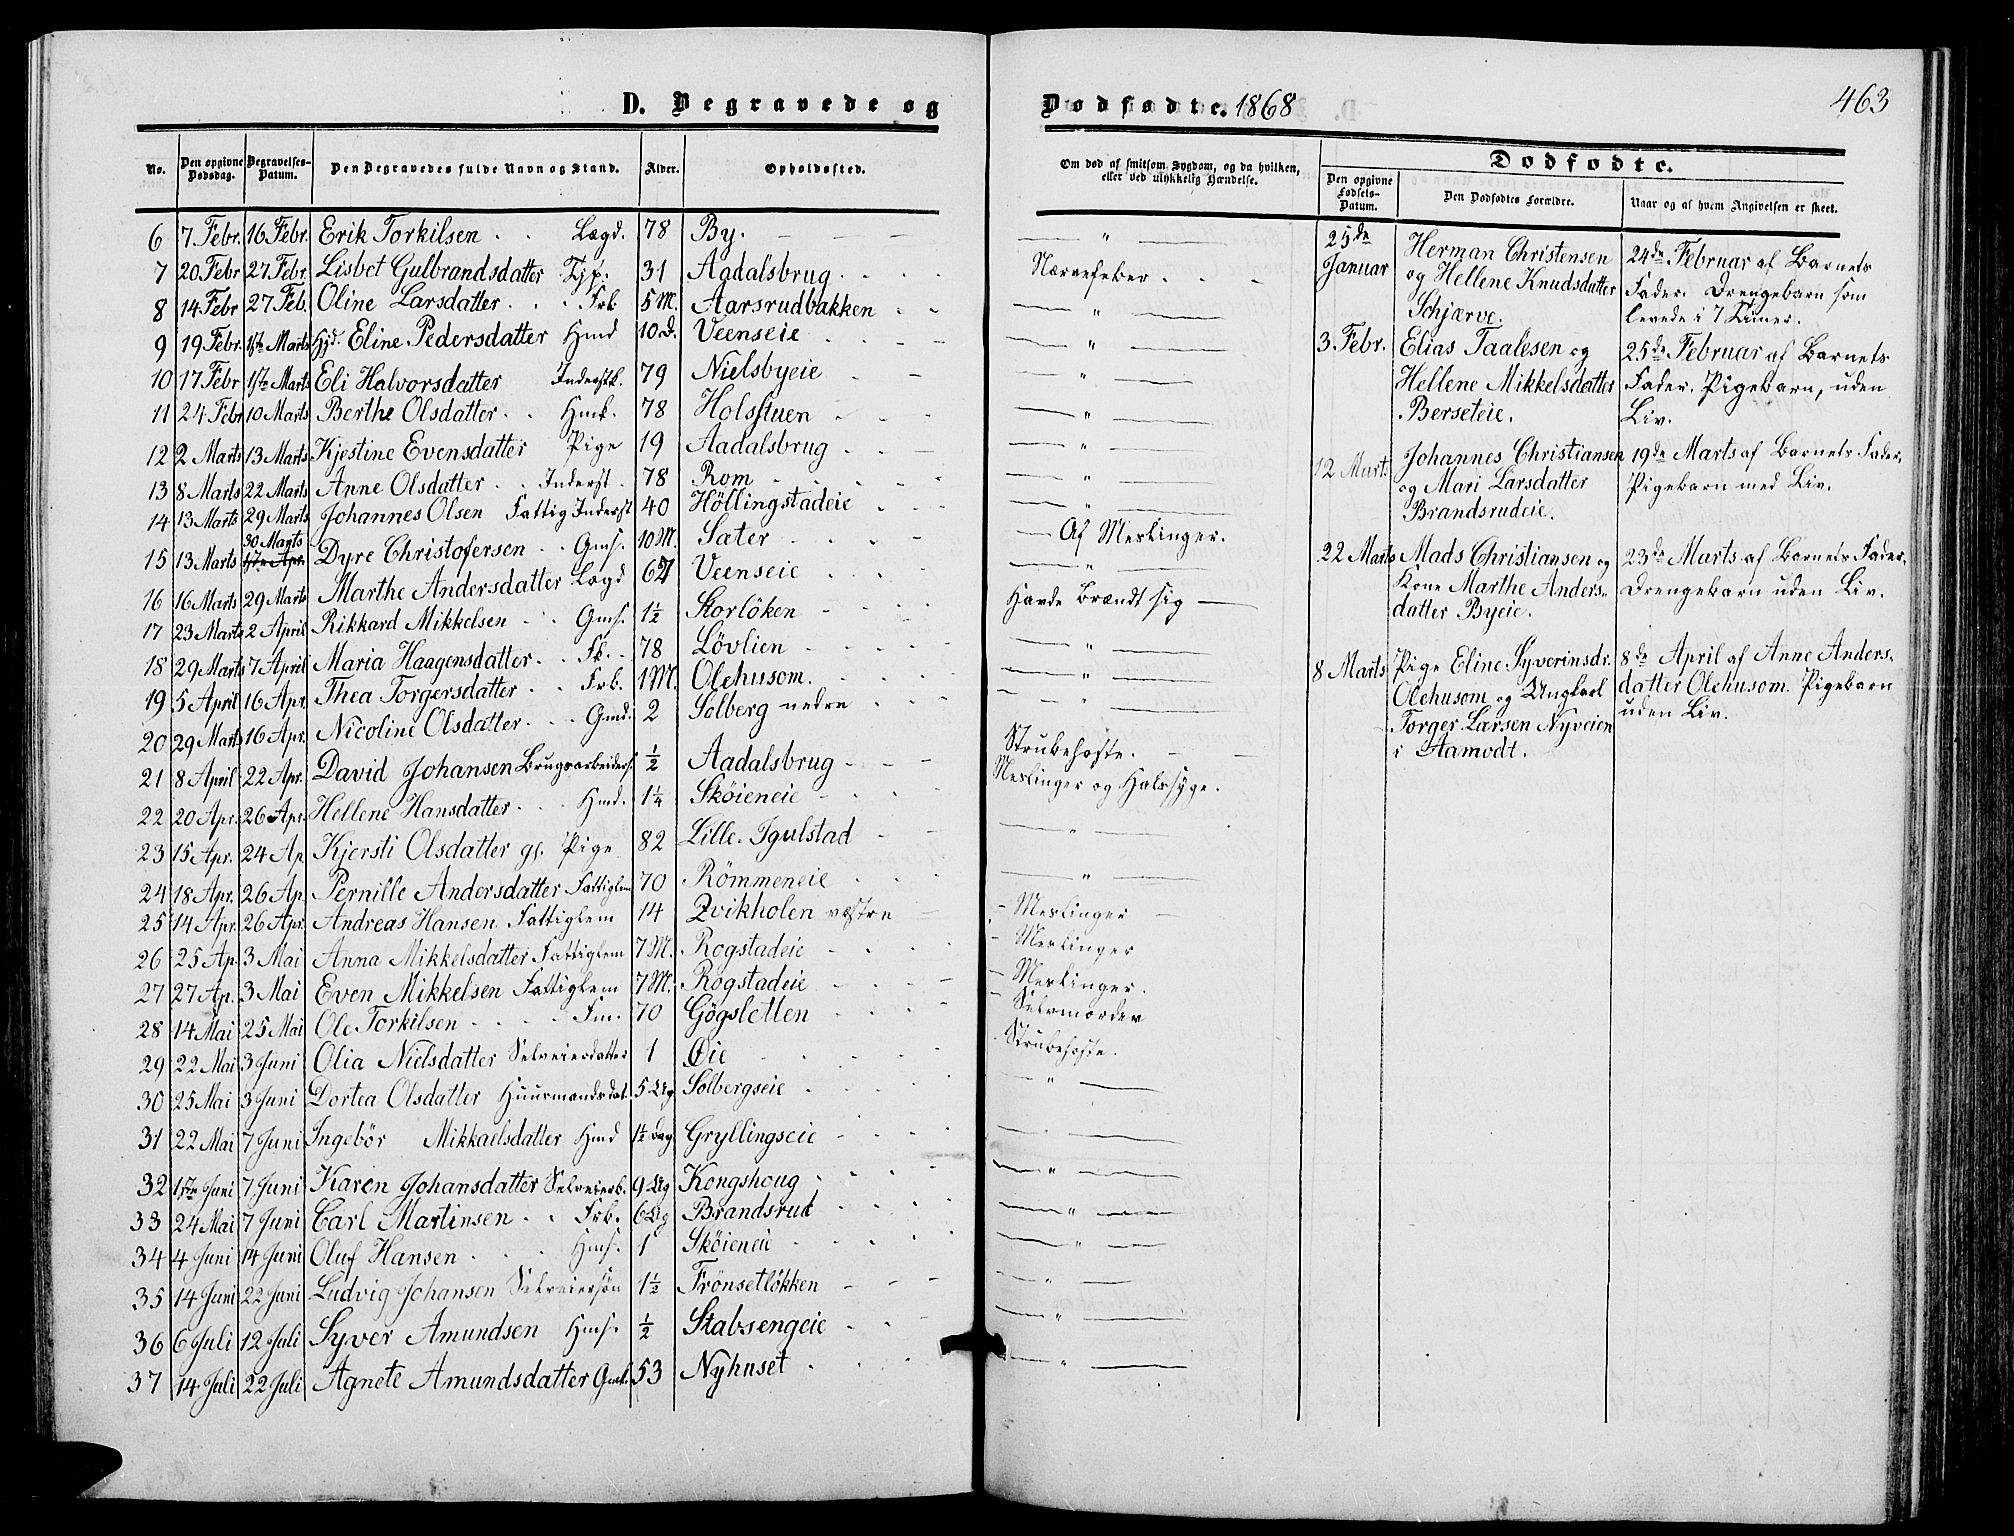 D. Begravede og
Dødfødte. 1868
463
No. Den opgivne Dødsdag. Begravelses-Datum. Den Begravedes fulde Navn og Stand. Alder. Opholdssted.
Om død af smitsom Sygdom, og da hvilken,
eller ved ulykkelig Hændelse.
Dødfødte.
Den opgivne Fødsels-Datum. Den Dødfødtes Forældre. Naar og af hvem Angivelsen er skeet.
6 7 Febr. 16 Febr. Erik Torkilsen . . Lægd. 78 By. — "
7 20 Febr 27 Febr. Lisbet Gulbrandsdatter Tjp. 31 Aadalsbrug . . . Nervefeber . . -
8 14 Febr 27 Feb. Oline Larsdatter . . . Frb 5 M. Aarsrudbakken . . — "
9 19 Febr. 1ste Marts Hjd. Eline Pedersdatter Hmd 10 D. Veenseie . . . — "
10 17 Febr 1ste Marts Eli Halvorsdatter Inderstk. 79 Nielsbyeie . - — "
11 24 Febr 10 Marts Berthe Olsdatter . . Hmk. 78 Holsstuen . . — "
12 2 Marts 13 Marts Kjestine Evensdatter Pige 19 Aadalsbrug . . — "
13 8 Marts 22 Marts Anne Olsdatter . . Inderst . 78 Rom . . . — "
14 13 Marts 29 Marts Johannes Olsen Fattig Inderst 40 Höllingstadeie . . — "
30 Marts
15 13 Marts 17de Apr. Dyre Christofersen . . Gms. 10 M. Sater . . . — Af Meslinger.
16 16 Marts 29 Marts Marthe Andersdatter Lægd 67 Veenseie . . . — "
17 23 Marts 2 April Rikkard Mikkelsen . . Gms. 1½ Storlöken - - Havde Brændt sig —
18 29 Marts 7 April Maria Haagensdatter . . Fk. - 78 Lövlien - - - — "
19 5 April 16 Apr. Thea Torgersdatter . . Frb. 1 M. Olehusom. . . . — "
20 29 Marts 16 Apr. Nicoline Olsdatter . . . Gmd. 2 Solberg nedre . . . — "
21 8 April 22 Apr. David Johansen Brugsarbeiders. ½ Aadalsbrug - - - Strubehoste. - -
22 20 Apr. 26 Apr. Hellene Hansdatter . . . Hmd. 1¼ Sköieneie - . . Meslinger og Halssyge.
23 15 Apr. 24 Ap Kjersti Olsdatter gl. Pige 82 Lille-Igulstad - - — "
24 18 Apr. 26 Ap. Pernille Andersdatter Fattiglem 70 Römmeneie . . . — "
25 14 Apr. 26 Apr. Andreas Hansen Fattiglem 14 Kvikholen vestre - - Meslinger -
26 25 Ap 3 Mai Anna Mikkelsdatter Fattiglem 7 M. Rogstadeie - . . . - Meslinger
27 27 Ap. 3 Mai Even Mikkelsen Fattiglem 7 M. Rogstadeie . . . - - Meslinger.
28 14 Mai 25 Mai Ole Torkilsen - . . - Fm. 70 Gögsletten . . . - Selvmorder
29 22 Mai 3 Juni Olia Nielsdatter Selveierdatter 1 Øie . . . . Strubehoste.
30 25 Mai 3 Juni Dortea Olsdatter Huusmandsdat. 5 Ug Solbergseie . . . . — "
31 22 Mai 7 Juni Ingebör Mikkaelsdatter Hmd 1½ Dag Gryllingseie - . . . — "
32 1ste Juni 7 Juni Karen Johansdatter Selveierb. 9 Ug Kongshoug . . . . — "
33 24 Mai 7 Juni Carl Martinsen . . Frb. 6 Ug Brandsrud . . . . — "
34 4 Juni 14 Juni Oluf Hansen . . . Hms. 1 Sköieneie - . . . — "
35 14 Juni 22 Juni Ludvig Johansen Selveiersøn 1½ Frönsetlökken - - - — "
36 6 Juli 12 Juli Syver Amundsen Hms. ½ Stabsengeie . . - — "
37 14 Juli 22 Juli Agnete Amundsdatter Gmk. 53 Nyhuset . . . — "
25de
Januar
Herman Christensen
og Hellene Knudsdatter
Schjærve.
24de Februar af Barnets
Fader. Drengebarn som
levede i 7 Timer.
3 Febr.
Elias Taalesen og
Hellene Mikkelsdatter
Berseteie.
25de Februar af Barnets
Fader. Pigebarn, uden
Liv.
12 Marts
Johannes Christiansen
og Mari Larsdatter
Brandsrudeie.
19de Marts af Barnets Fader.
Pigebarn med Liv.
22 Marts
Mads Christiansen og
Kone Marthe Anders-
datter Byeie.
23de Marts af Barnets Fader.
Drengebarn uden Liv.
8 Marts
Pige Eline Syverinsdr.
Olehusom og Ungkarl
Torger Larsen Nyveien
i Aamodt.
8de April af Anne Anders-
datter Olehusom. Pigebarn
uden Liv.